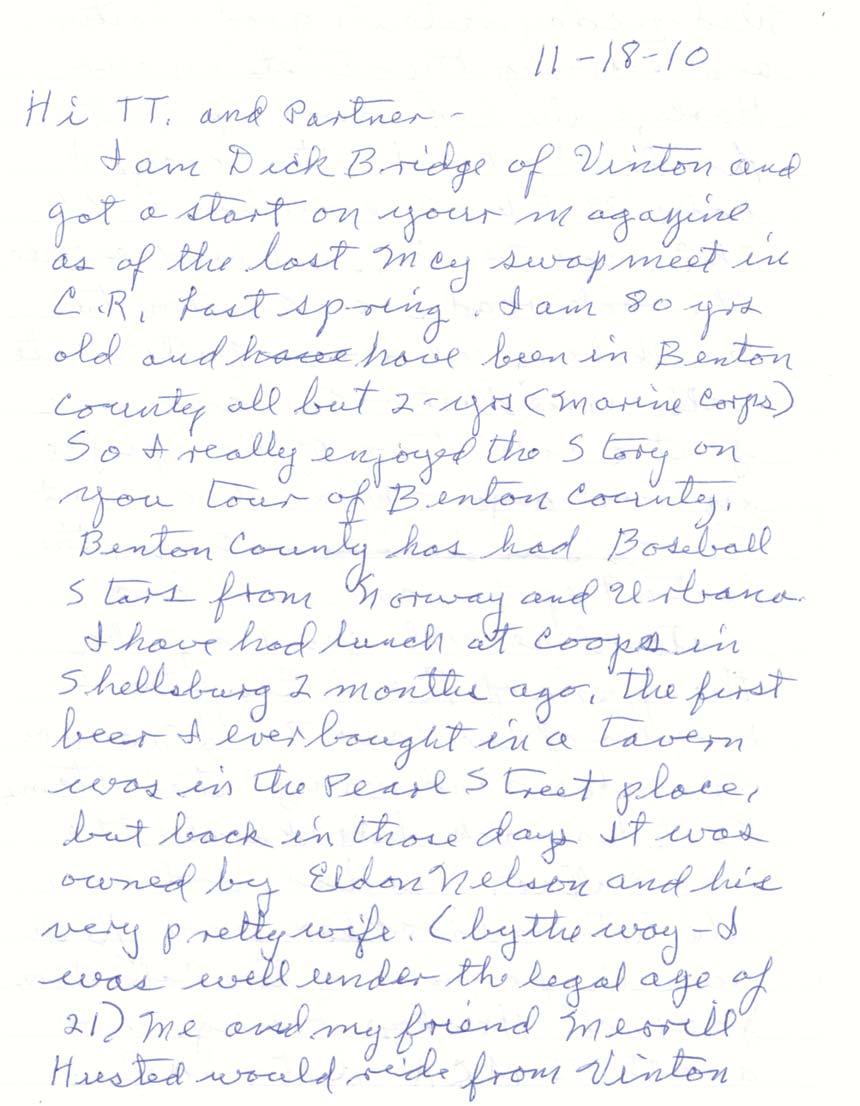 11-18-10
Hi TT. and Partner -
I am Dick Bridge of Vinton and
got a start on your magazine
as of the last Mcy swap meet in
C.R. Last spring. I am 80 yrs
old and have have been in Benton
County all but 2-yrs (Marine Corps)
So I really enjoyed the Story on
you Tour of Benton County.
Benton County has had Baseball
Stars from Norway and Urbana.
I have had lunch at Coops in
Shellsburg 2 months ago. The first
beer I ever bought in a Tavern
was in the Pearl Street place,
but back in those days it was
owned by Eldon Nelson and his
very pretty wife. (by the way - I
was well under the legal age of
21) Me and my friend Merrill
Husted would ride from Vinton